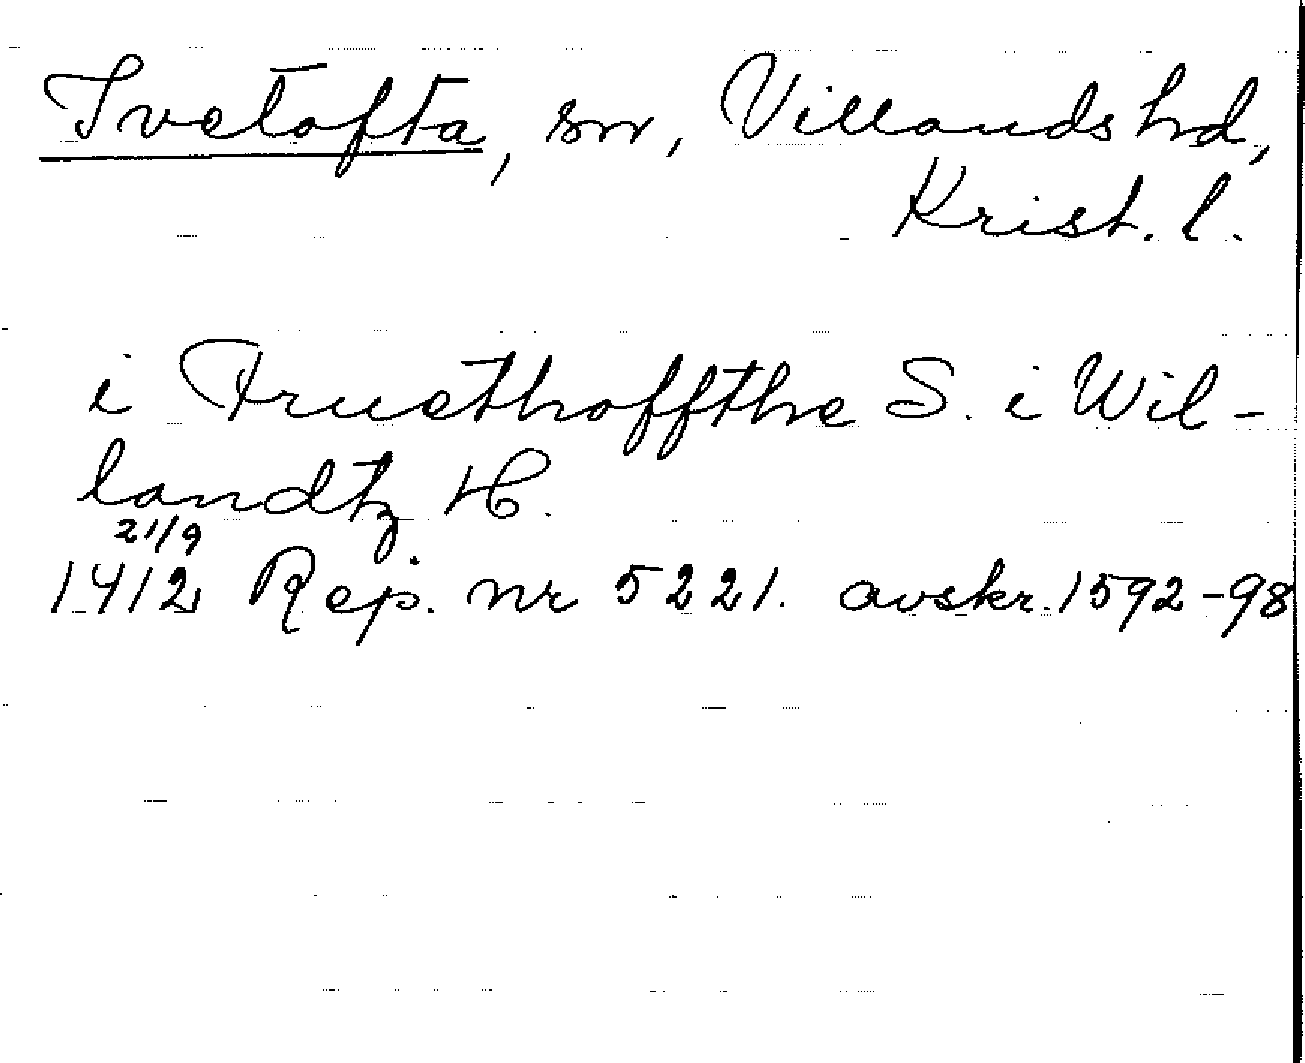 Ivetofta, sn, Villands hd,
Krist. l.
i Fruethoffthe S. i Wil-
landtz H.
21/9
1412 Rep. nr 5221. avskr. 1592-98